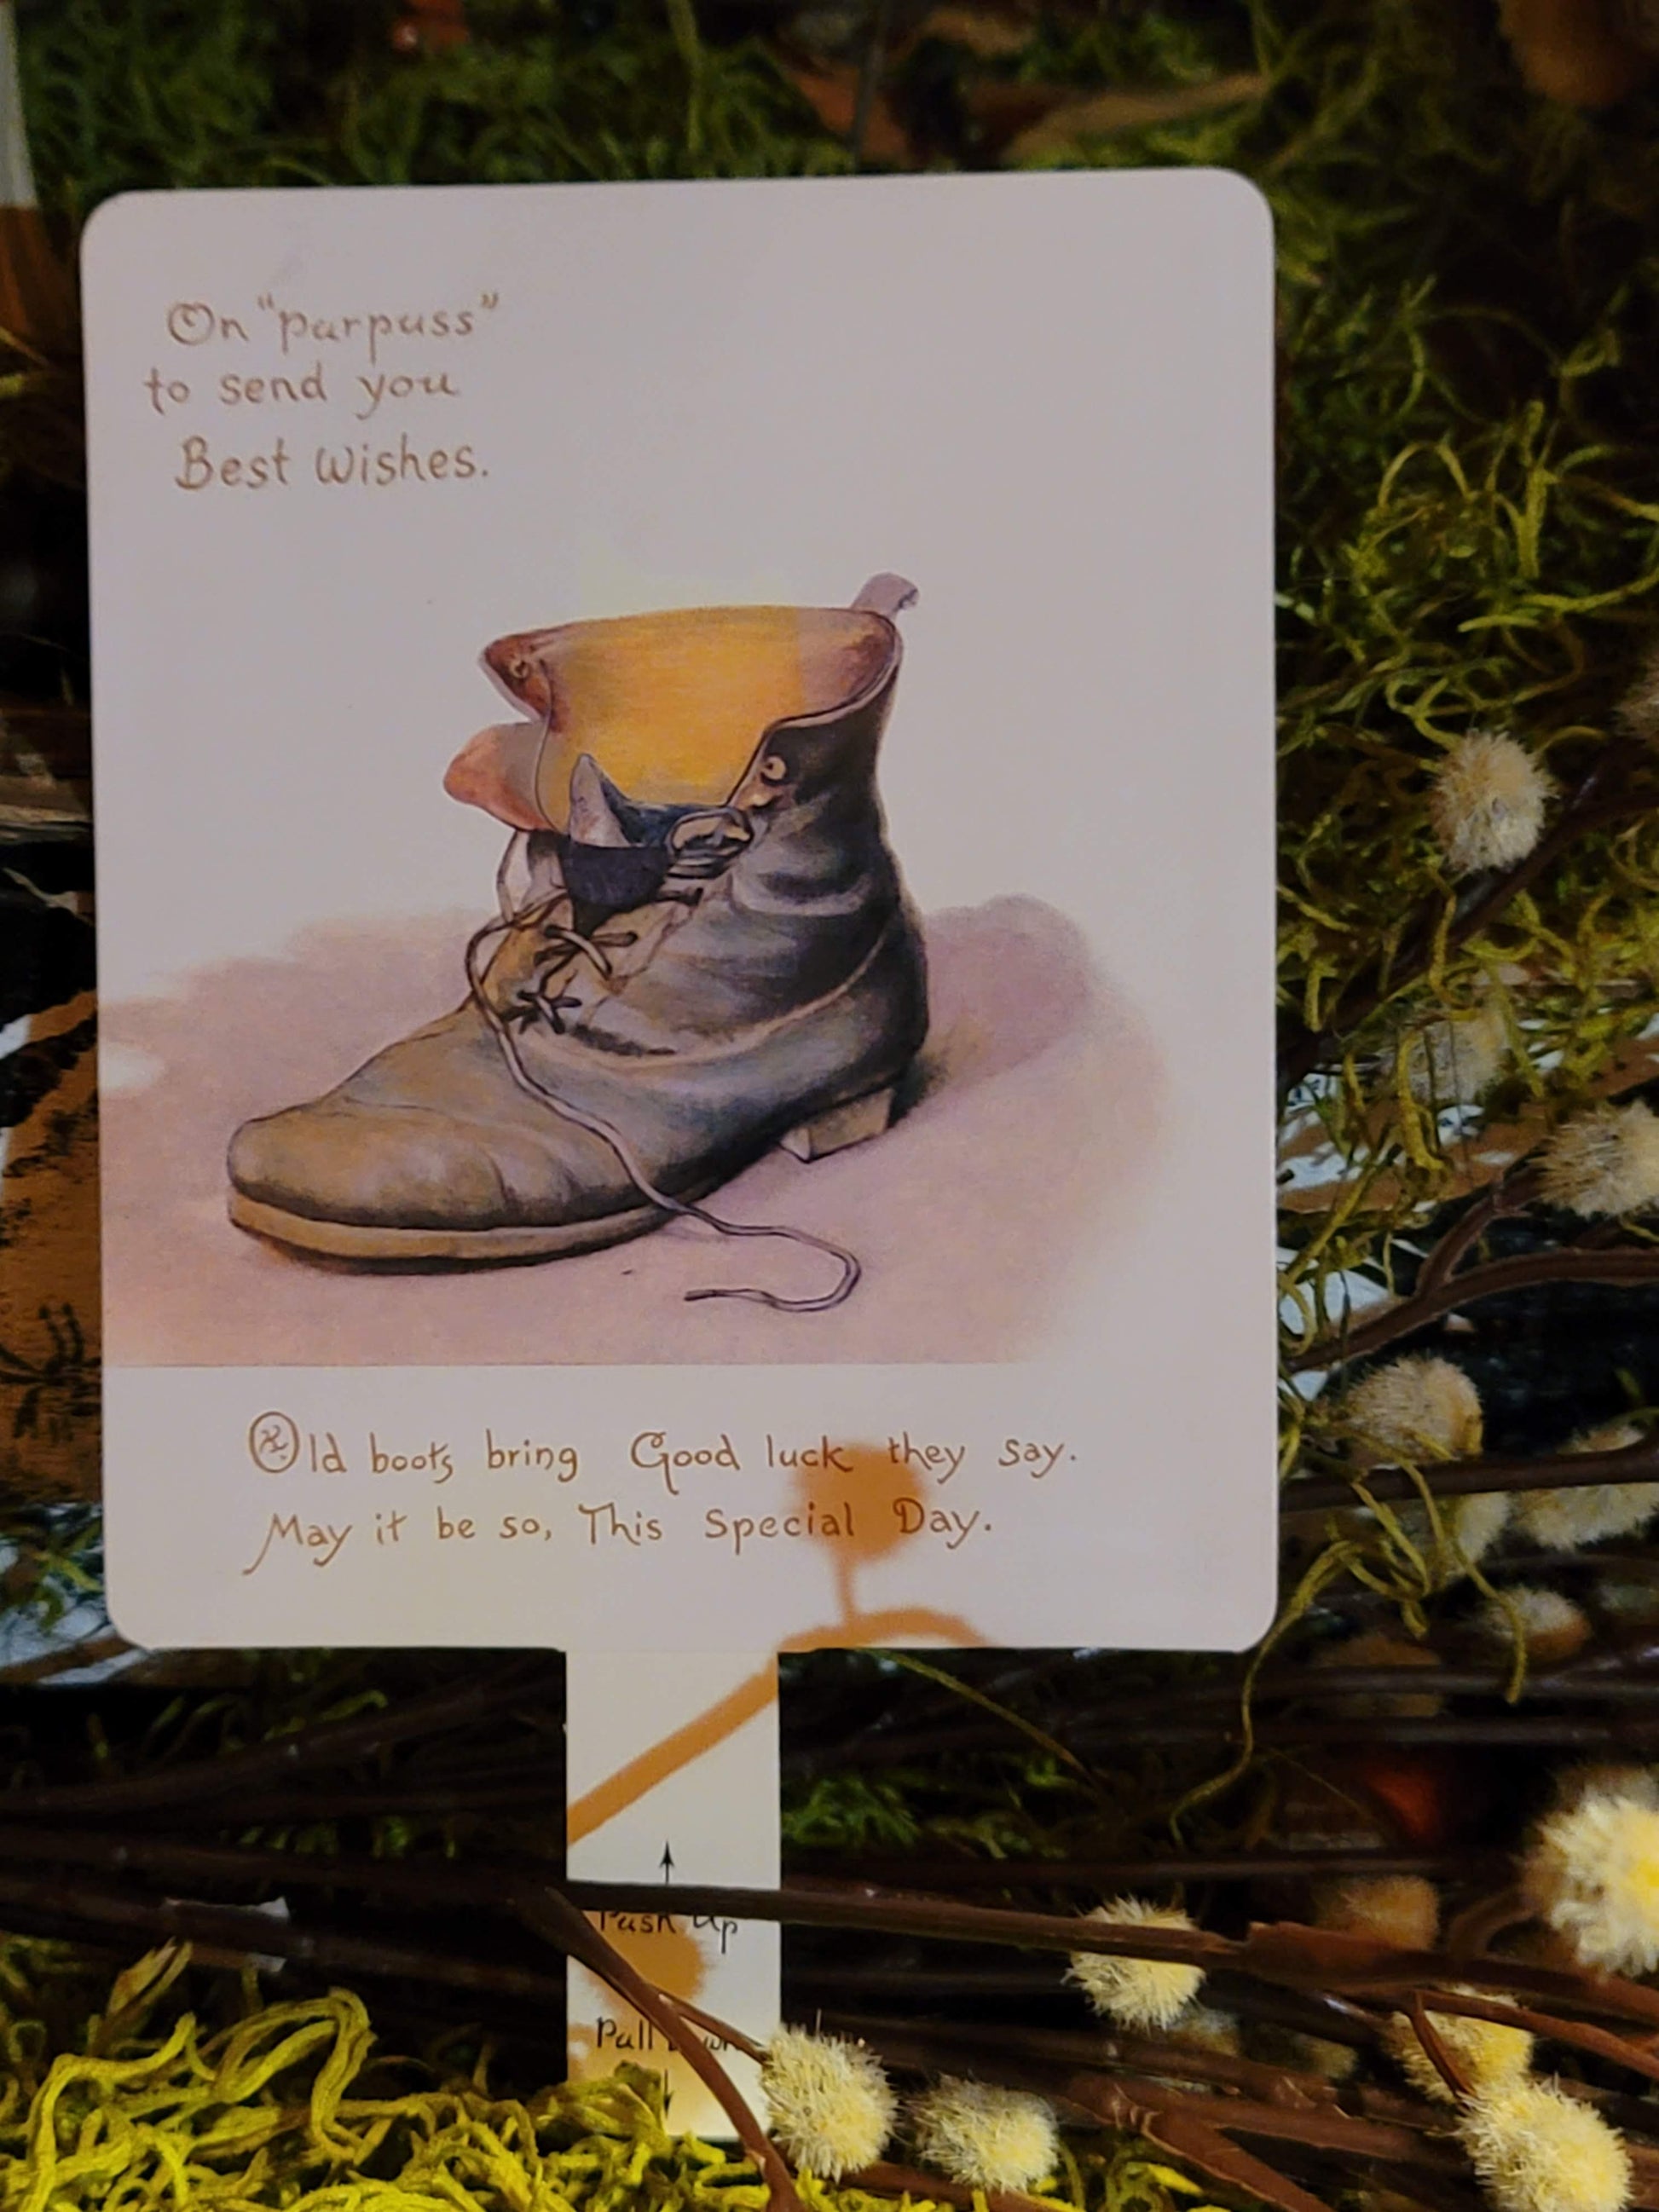 On "purpuss"
to send you
Best Wishes.
Old boots bring Good luck they say.
May it be so, This Special Day.
Push Up
Pull Down